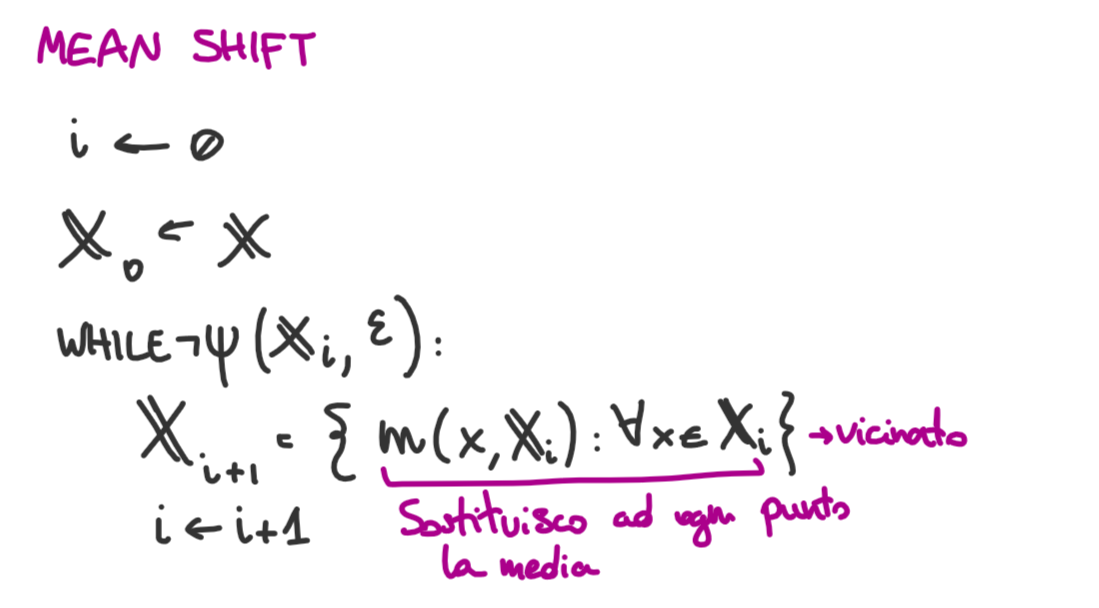 MEAN SHIFT
i ← 0
𝕏₀ ← 𝕏
WHILE ¬ψ(𝕏ᵢ, ε):
𝕏ᵢ₊₁ = { m(x, 𝕏ᵢ) : ∀x∈ 𝕏ᵢ} → vicinato
i ← i+1
Sostituisco ad ogni punto
la media